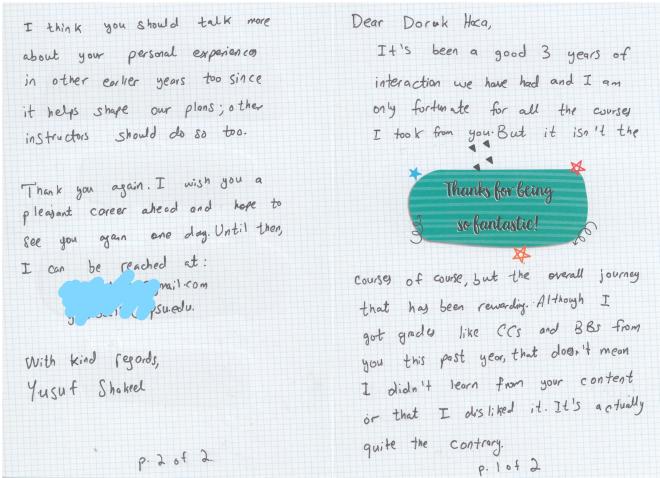 Dear Doruk Hoca,
It's been a good 3 years of
interaction we have had and I am
only fortunate for all the courses
I took from you. But it isn't the
Thanks for being
so fantastic!
courses of course, but the overall journey
that has been rewarding. Although I
got grades like CCs and BBs from
you this past year, that doesn't mean
I didn't learn from your content
or that I disliked it. It's actually
quite the contrary.
p. 1 of 2
I think you should talk more
about your personal experiences
in other earlier years too since
it helps shape our plans; other
instructors should do so too.
Thank you again. I wish you a
pleasant career ahead and hope to
see you again one day. Until then,
I can be reached at:
@gmail.com
psu.edu.
With kind regards,
Yusuf Shakeel
p. 2 of 2